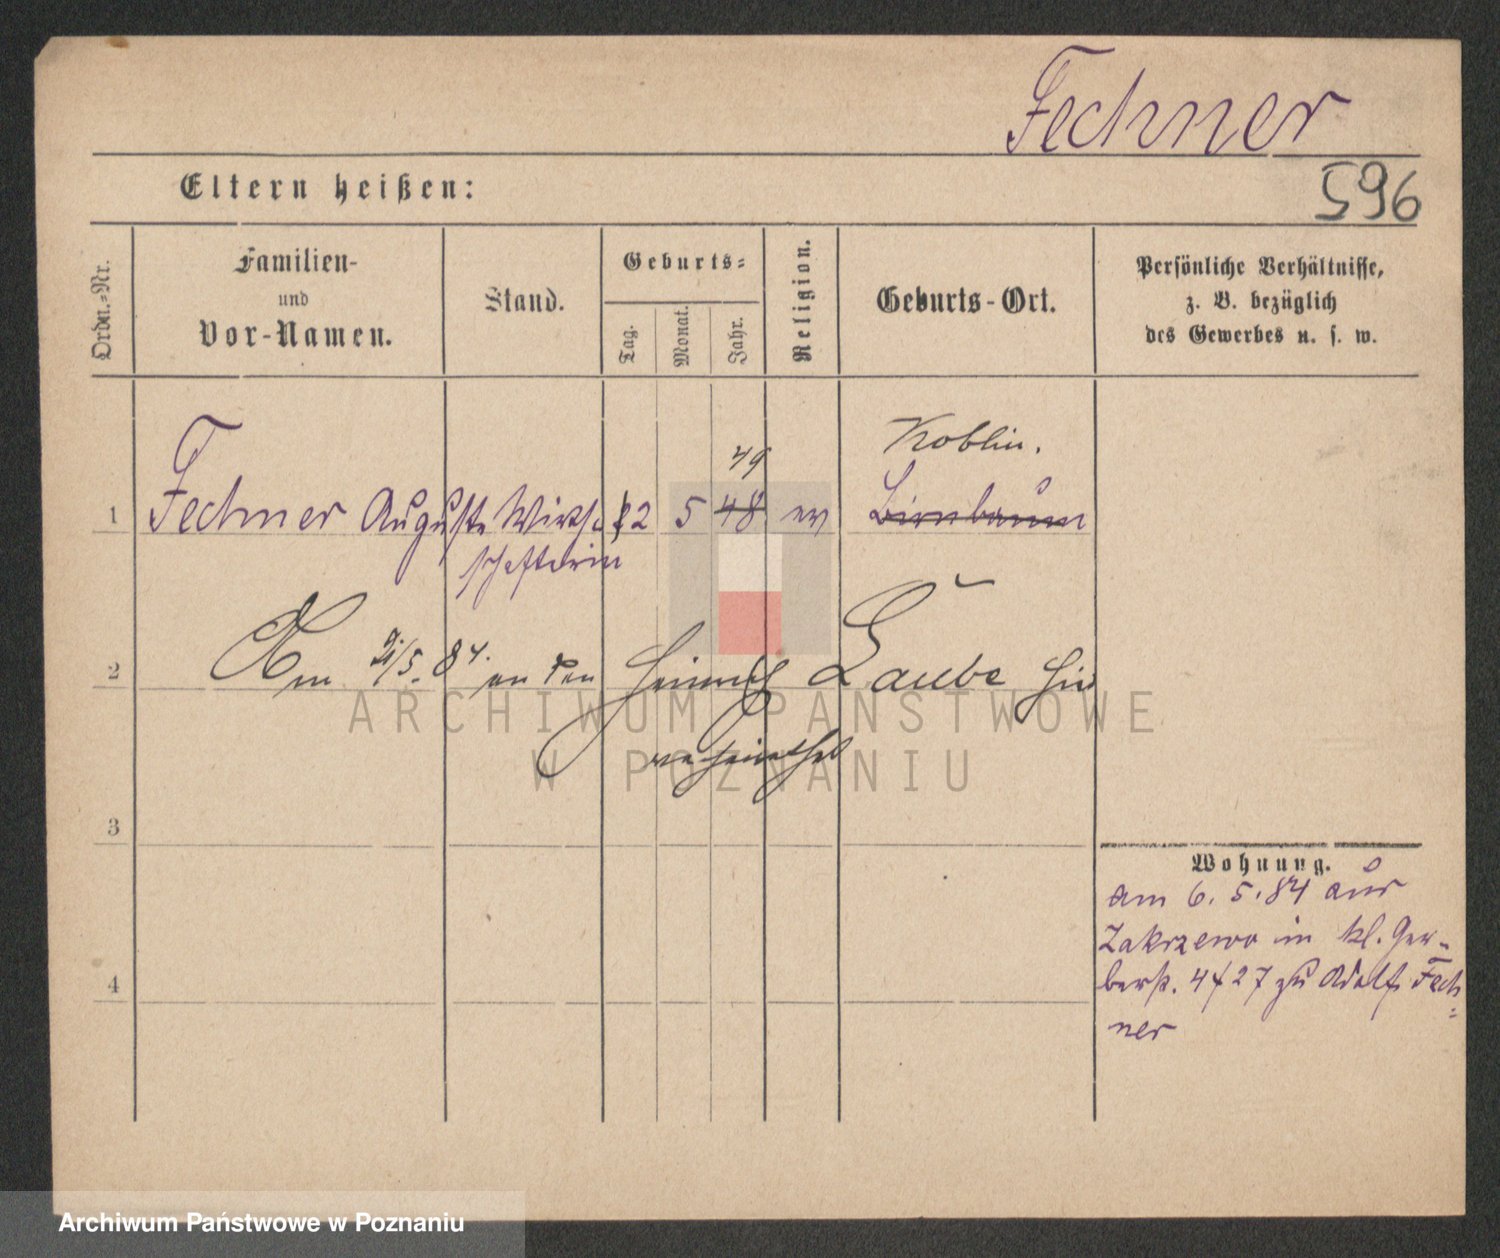 Fechner
596
Eltern heißen:
Ordn.-Nr.
Familien-
und
Vor-Namen.
Stand.
Geburts-
Tag.
Monat.
Jahr.
Religion.
Geburts-Ort.
Persönliche Verhältnisse,
z. B. bezüglich
des Gewerbes u. s. w.
Koblin.
49
1 Fechner Auguste Wirth 22 5 48 ev Birnbaum
schafterin
2 Am 21/5. 84. an den Heinrich Laube hier
verheirathet
3
4
Wohnung.
am 6. 5. 84 aus
Zakrzewo in kl. Ger-
berst. 4/27 zu Adolf Fech
ner
ARCHIWUM PAŃSTWOWE
W POZNANIU
Archiwum Państwowe w Poznaniu